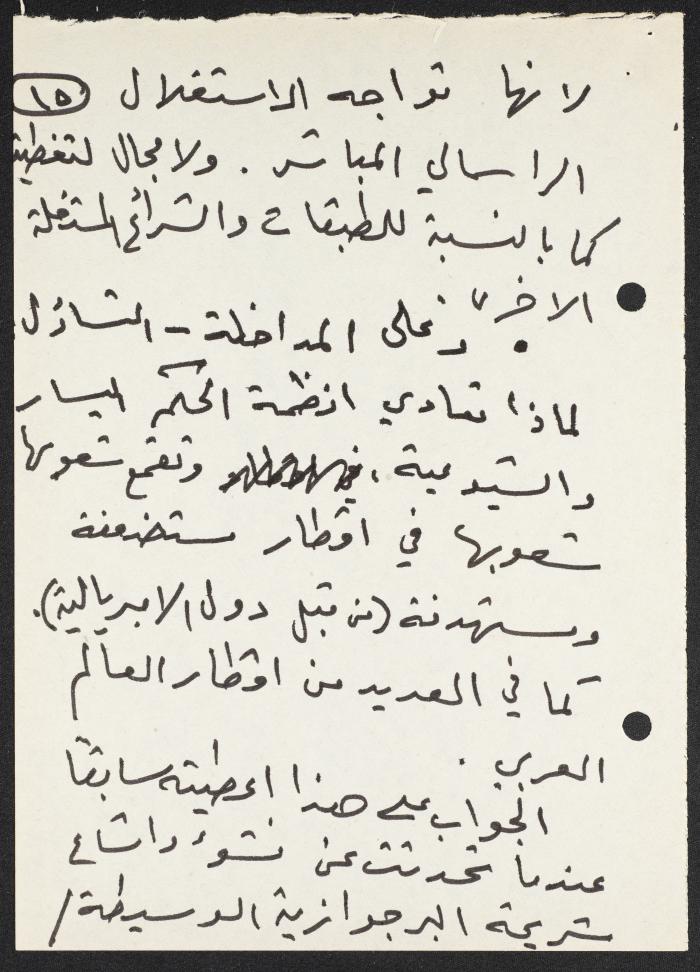 ١٥
لانها تواجه الاستغلال
الراسمالي المباشر. ولا مجال لتغطيته
كما بالنسبة للطبقات والشرائح المستغلة
الاخرى.
وعلى المداخلة - التساؤل
لماذا تعادي انظمة الحكم اليسار
والشيوعية، وتقمع شعوبها
شعوبها في اقطار مستضعفة
ومستهدفة (من قبل دول الامبريالية).
كما في العديد من اقطار العالم
العربي.
الجواب على هذا اعطيته سابقا
عندما تحدثت عن نشوء واتساع
شريحة البرجوازية الوسيطة/